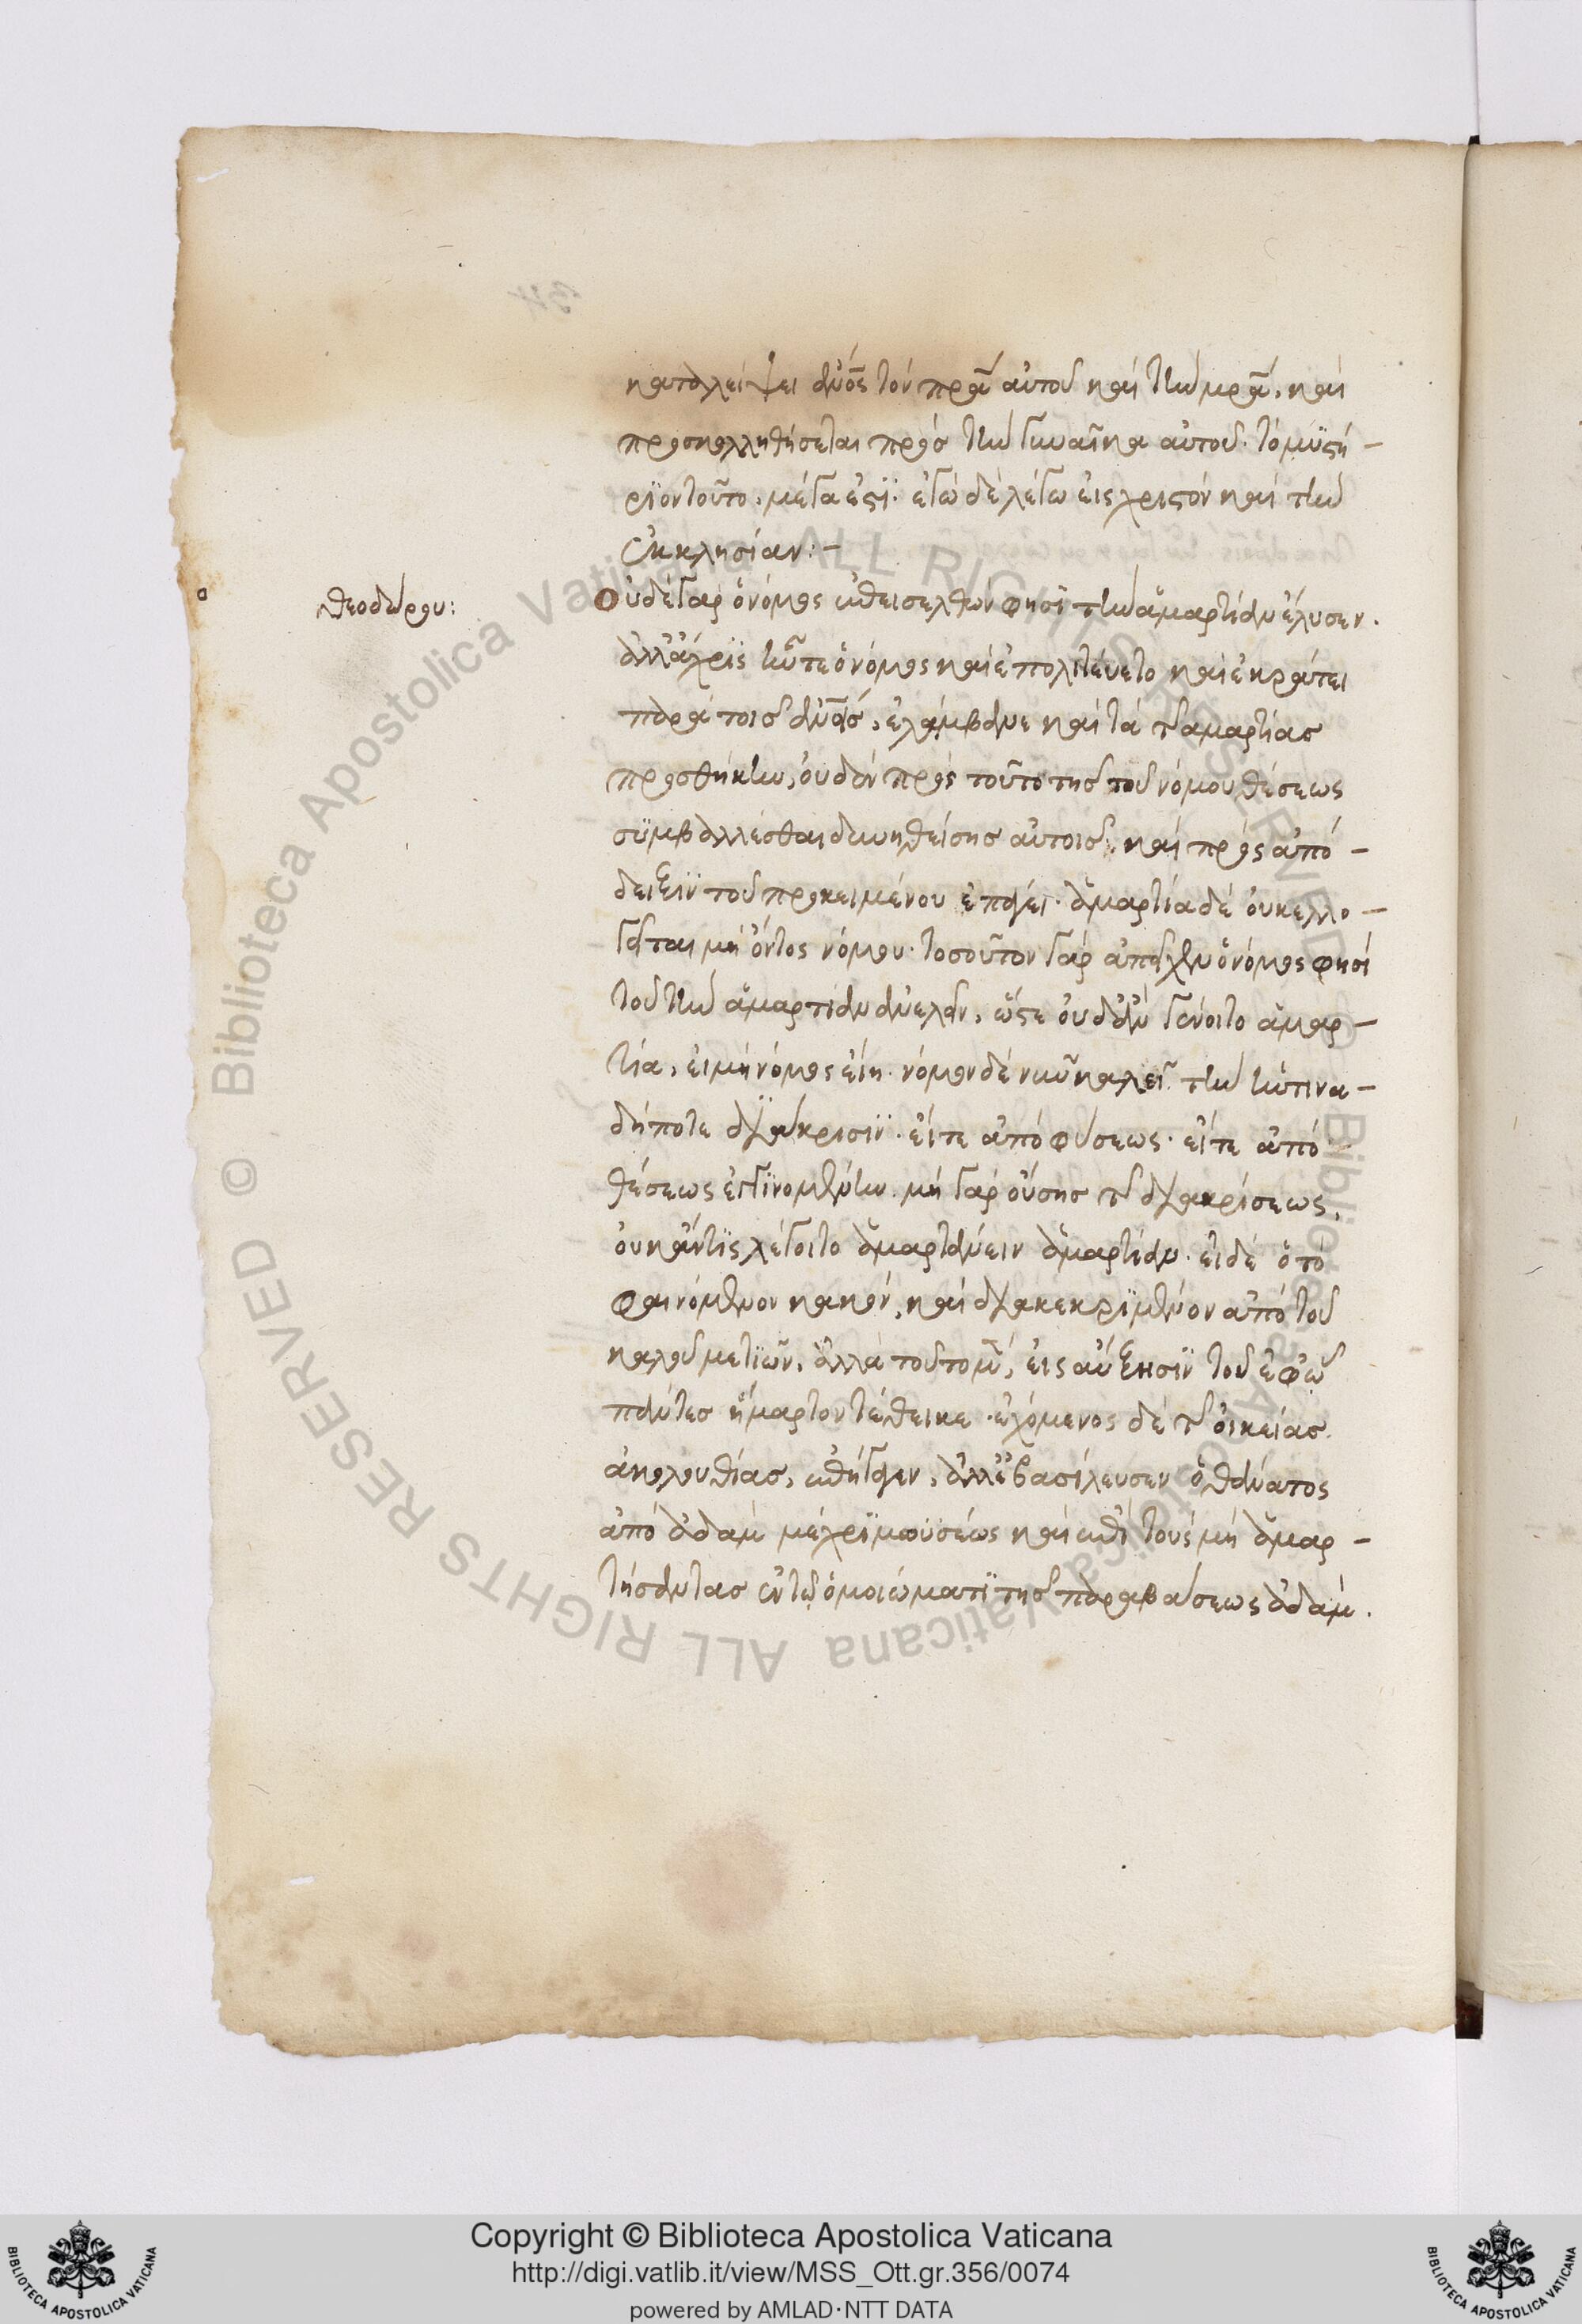 καταλείψει ἄνος τὸν πρα αὐτοῦ καὶ τὴν μρα, καὶ
προσκολληθήσεται πρὸς τὴν γυναῖκα αὐτοῦ· τὸ μυστή-
ριον τοῦτο, μέγα ἐστί· ἐγὼ δὲ λέγω εἰς χριστὸν καὶ τὴν
ἐκκλησίαν:-
θεοδώρου:
Οὐδὲ γὰρ ὁ νόμος ἐπεισελθὼν φησὶ τὴν ἁμαρτίαν ἔλυσεν.
ἀλλ' ἄχρις ἦν τε ὁ νόμος καὶ ἐπολιτεύετο καὶ ἐκράτει
παρὰ τοῖς ἀνοις, ἐλάμβανε καὶ τὰ τῆς ἁμαρτίας
προσθήκην, οὐδὲν πρὸς τοῦτο τῆς τοῦ νόμου θέσεως
συμβαλλέσθαι δυνηθείσης αὐτοῖς, καὶ πρὸς ἀπό-
δειξιν τοῦ προκειμένου ἐπάγει· ἁμαρτία δὲ οὐκ ἐλλο-
γεῖται μὴ ὄντος νόμου· τοσοῦτον γὰρ ἀπεῖχεν ὁ νόμος φησὶ
τοῦ τὴν ἁμαρτίαν ἀνελεῖν, ὥστε οὐδ' ἂν γένοιτο ἁμαρ-
τία, εἰ μὴ νόμος εἴη· νόμον δὲ νῦν καλεῖ τὴν ἥντινα-
δήποτε διάκρισιν· εἴτε ἀπὸ φύσεως· εἴτε ἀπὸ
θέσεως ἐγγινομένην· μὴ γὰρ οὔσης τῆς διακρίσεως,
οὐκ ἄν τις λέγοιτο ἁμαρτάνειν ἁμαρτίαν· εἰ δὲ ὁ τὸ
φαινόμενον κακὸν, καὶ διακεκριμένον ἀπὸ τοῦ
καλοῦ μετιὼν, ἀλλὰ τοῦτο μὲν, εἰς αὔξησιν τοῦ ἐφ' ᾧ
πάντες ἥμαρτον τέθεικε· ἐχόμενος δὲ τῆς οἰκείας
ἀκολουθίας, ἐπήγαγεν, ἀλλ' ἐβασίλευσεν ὁ θάνατος
ἀπὸ ἀδὰμ μέχρι μωϋσέως καὶ ἐπὶ τοὺς μὴ ἁμαρ-
τήσαντας ἐν τῷ ὁμοιώματι τῆς παραβάσεως ἀδάμ.
Copyright © Biblioteca Apostolica Vaticana
http://digi.vatlib.it/view/MSS_Ott.gr.356/0074
powered by AMLAD·NTT DATA
BIBLIOTECA APOSTOLICA VATICANA
BIBLIOTECA APOSTOLICA VATICANA
© Biblioteca Apostolica Vaticana ALL RIGHTS RESERVED
© Biblioteca Apostolica Vaticana ALL RIGHTS RESERVED